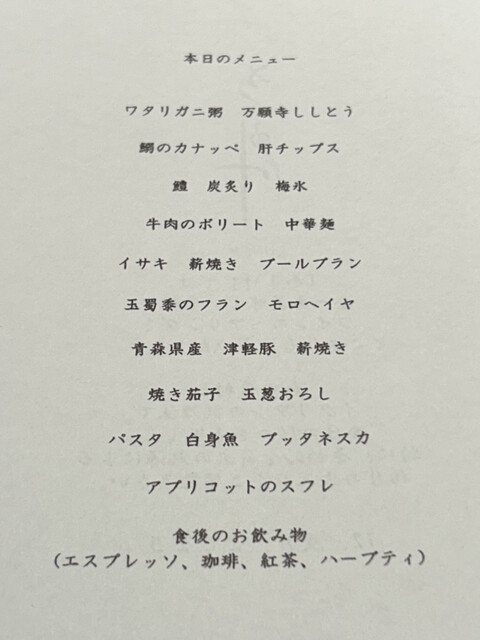 本日のメニュー
ワタリガニ粥　万願寺ししとう
鰯のカナッペ　肝チップス
鱧　炭炙り　梅氷
牛肉のボリート　中華麺
イサキ　薪焼き　ブールブラン
玉蜀黍のフラン　モロヘイヤ
青森県産　津軽豚　薪焼き
焼き茄子　玉葱おろし
パスタ　白身魚　プッタネスカ
アプリコットのスフレ
食後のお飲み物
（エスプレッソ、珈琲、紅茶、ハーブティ）